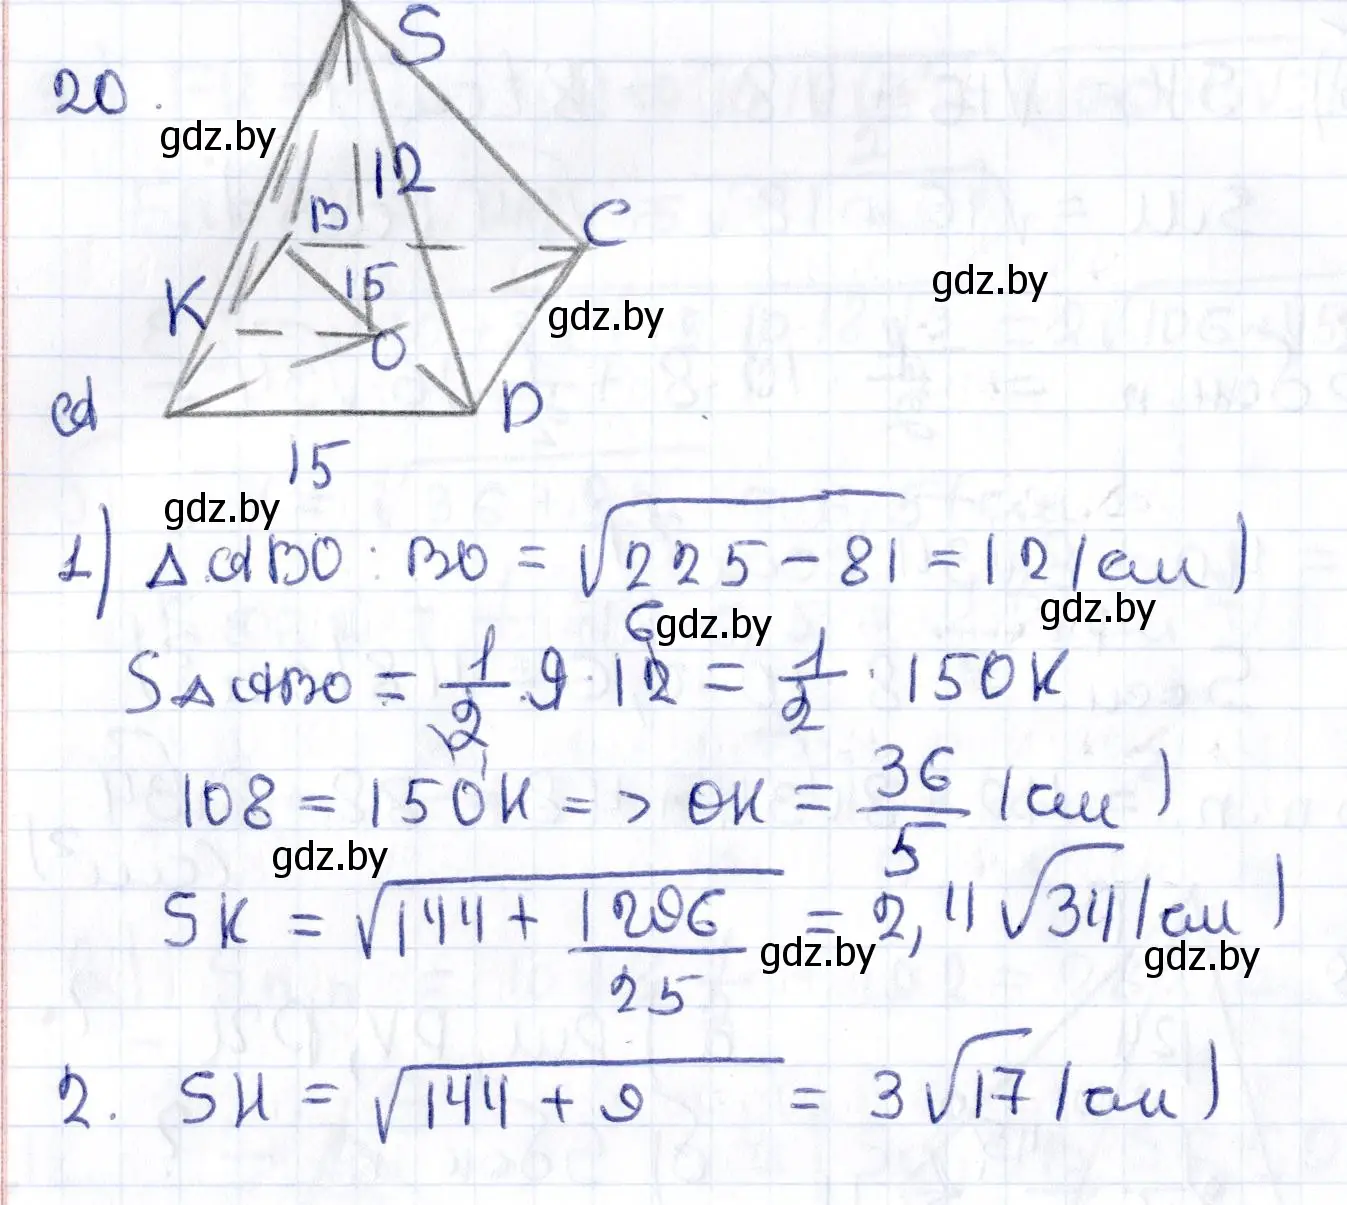 S
20.
gdz.by
12
B
C
gdz.by
K
15
gdz.by
O
A
D
15
gdz.by
1) △ABO: BO = √225 - 81 = 12 (см)
gdz.by
gdz.by
S△ABO = 1/2 · 9 · 12 = 1/2 · 15OK
6
1
108 = 15OK => OK = 36/5 (см)
gdz.by
SK = √144 + 1296/25 = 2,4√34 (см)
gdz.by
gdz.by
2. SK = √144 + 9 = 3√17 (см)